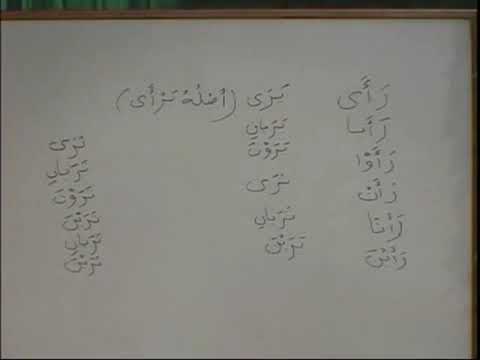 رَأَى يَرَى (أَصْلُهُ يَرْأَى)
رَأَيَا يَرَيَانِ
رَأَوْا يَرَوْنَ
رَأَتْ تَرَى
رَأَتَا تَرَيَانِ
رَأَيْنَ يَرَيْنَ
تَرَى
تَرَيَانِ
تَرَوْنَ
تَرَيْنَ
تَرَيَانِ
تَرَيْنَ